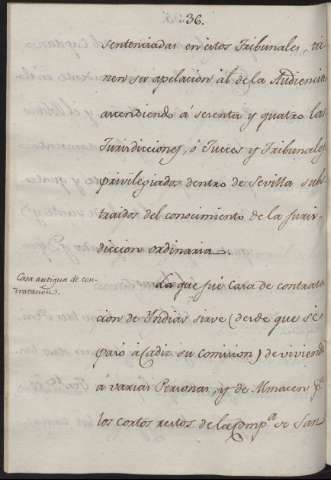 36.
sentenciadas en estos Tribunales, vi-
nen su apelacion al de la Audiencia
ascendiendo á sesenta y quatro las
Jurisdicciones, ó Jueces y Tribunales
privilegiados dentro de Sevilla subs-
traidos del conocimiento de la juris-
diccion ordinaria.
Casa antigua de con-
tratacion.
La que fué Casa de contrata-
cion de Yndias sirve (desde que se
pasó á Cadiz su comision) de vivienda
á varias Personas, y de Almacen pª
los cortos restos de la Compª de San